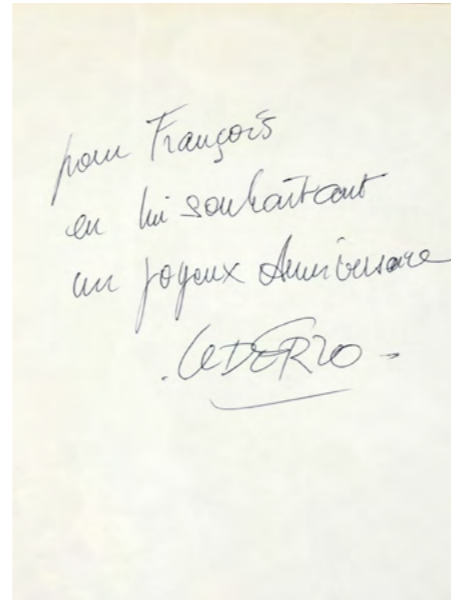 pour François
en lui souhaitant
un joyeux Anniversaire
. UDERZO -